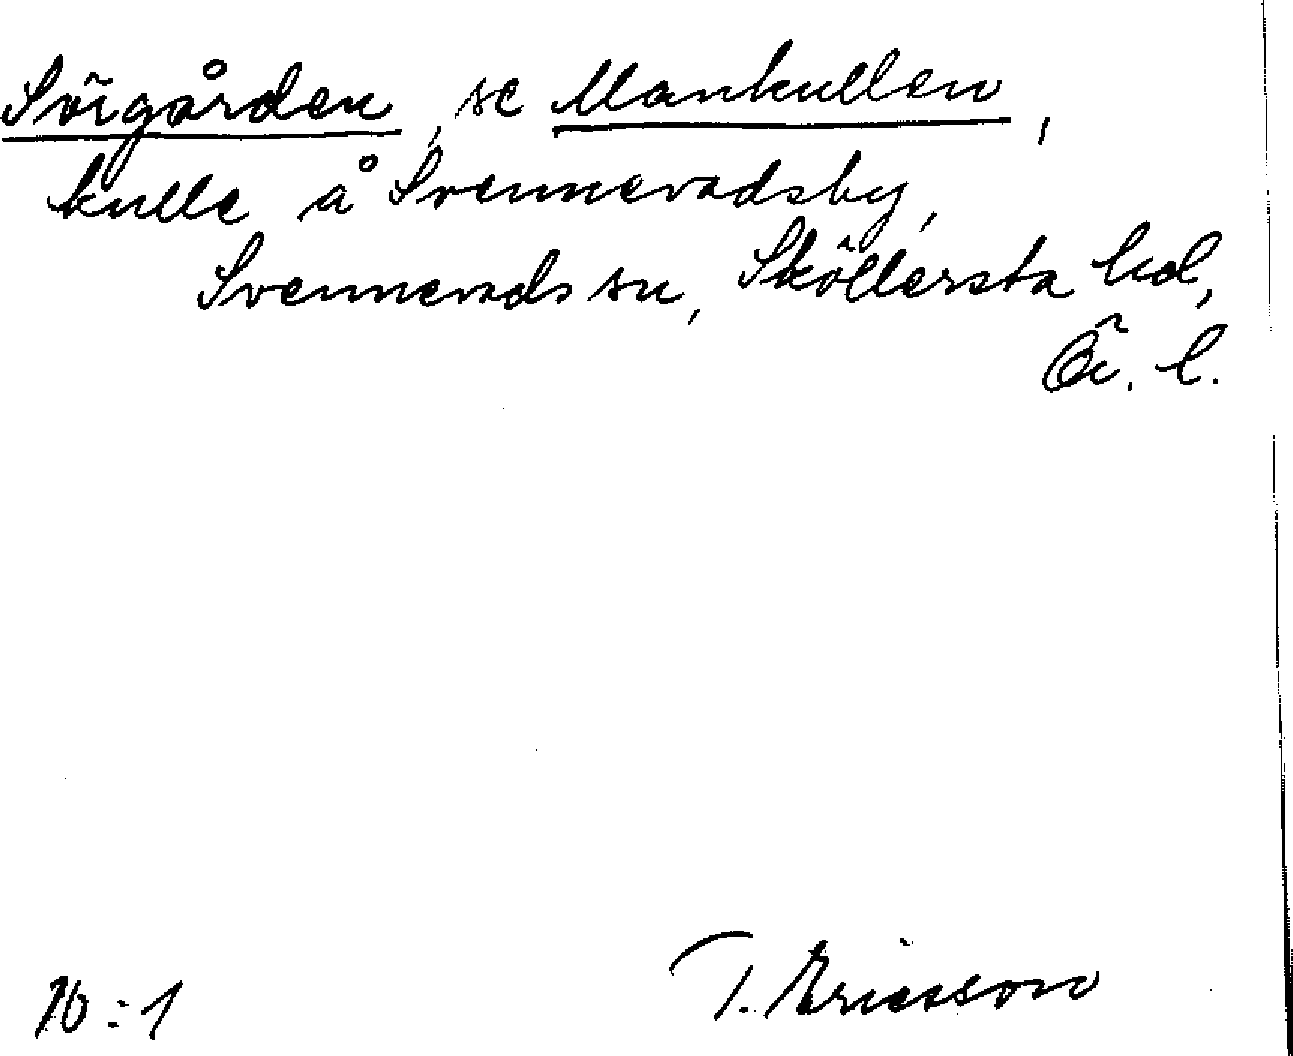 Sörgården, se Mankullen,
kulle å Svennevadsby,
Svennevads sn, Sköllersta hd,
Ör. l.
T. Ericsson
10:1